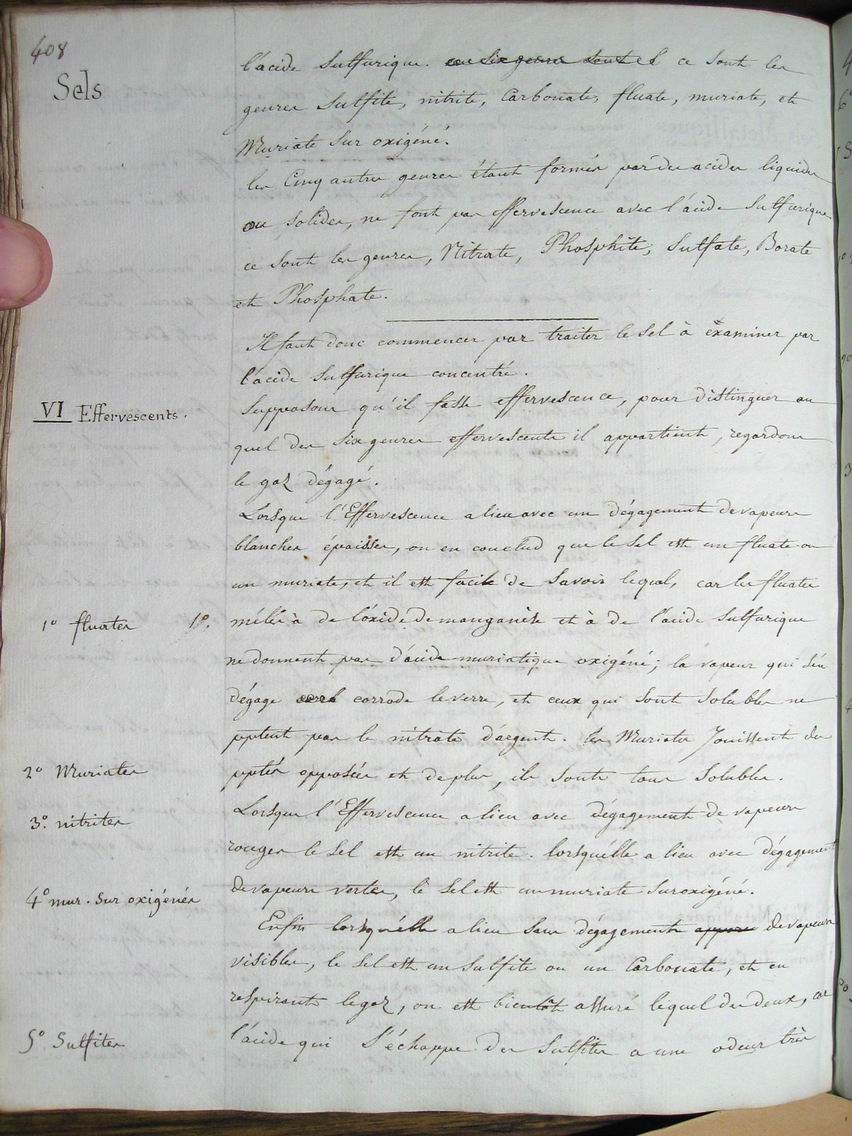 408
Sels
l'acide sulfurique. ces six genres sont et ce sont les
genres sulfite, nitrite, Carbonate, fluate, muriate, et
Muriate sur oxigéné.
les Cinq autres genres étant formés par des acides liquides
ou solides, ne font pas effervescence avec l'acide sulfurique
ce sont les genres, Nitrate, Phosphite, Sulfate, Borate
et Phosphate.
Il faut donc commencer par traiter le sel à éxaminer par
l'acide sulfurique concentré.
VI Effervescents.
Supposons qu'il fasse effervescence, pour distinguer au
quel des six genres effervescents il appartient, regardons
le gaz dégagé.
Lorsque l'Effervescence a lieu avec un dégagement de vapeurs
blanches épaisses, on en conclud que le sel est un fluate ou
un muriate, et il est facile de savoir lequel, car les fluates
1º fluates 1º. mélés à de l'oxide de manganèse et à de l'acide sulfurique
ne donnent pas d'acide muriatique oxigéné; la vapeur qui s'en
dégage corrode le verre, et ceux qui sont solubles ne
pptent pas le nitrate d'argent. les Muriates Jouissent des
2º Muriates pptés opposées et de plus, ils sont tous solubles.
3º. nitrites
Lorsque l'Effervescence a lieu avec dégagement de vapeurs
rouges le sel est un nitrite. lorsqu'elle a lieu avec dégagement
4º mur. sur oxigénés
de vapeurs vertes, le sel est un muriate suroxigéné.
Enfin lorsqu'elle a lieu sans dégagement de vapeurs
visibles, le sel est un sulfite ou un Carbonate, et en
respirant le gaz, on est bientôt assuré lequel des deux, car
5º Sulfites l'acide qui s'échappe des sulfites a une odeur très